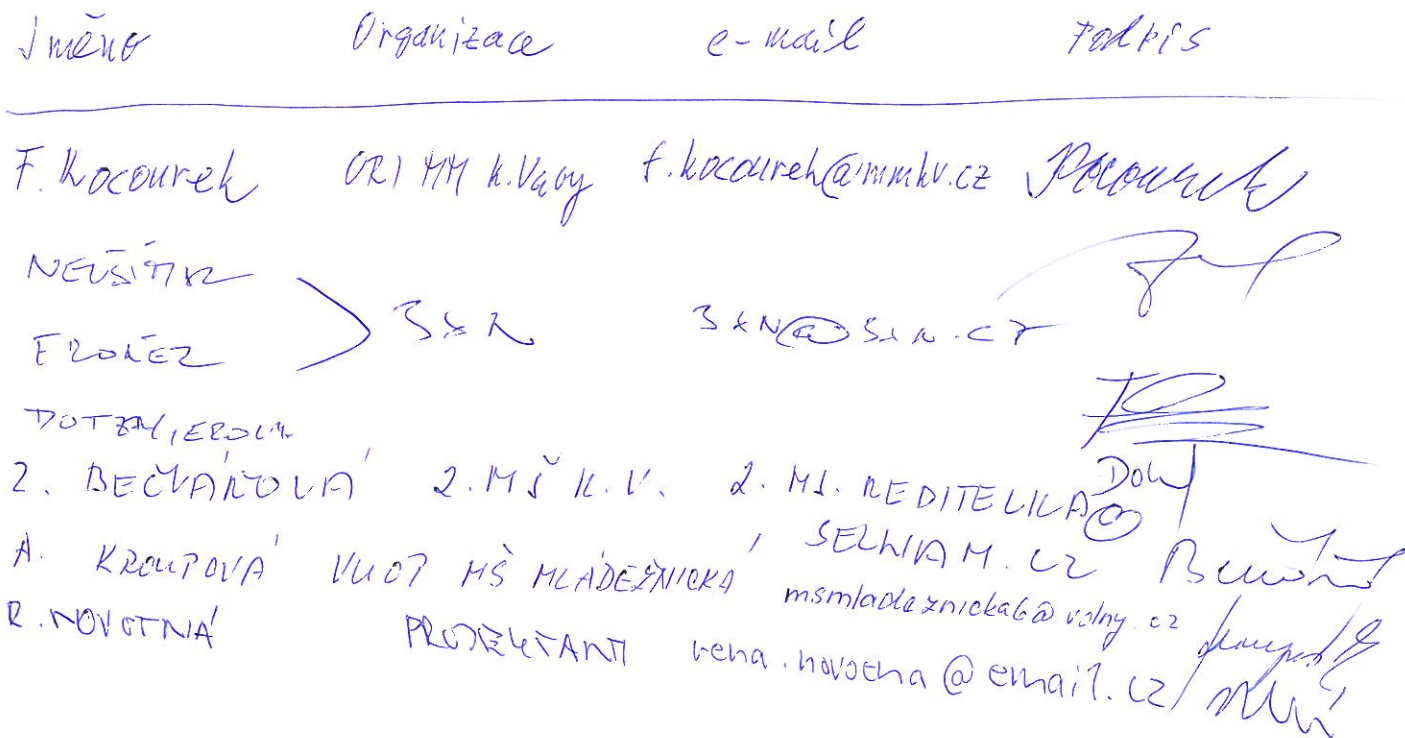 Jméno Organizace e-mail Podpis
F. Kocourek ORI MM K.Vary f.kocourek@mmkv.cz Kocourek
NEUŠITZER
FRONĚK 3xN 3xN@3xN.CZ
Z. BEČVÁŘOVÁ 2.MŠ K.V. 2.MS.REDITELKA@
SEZNAM.CZ
A. KROUPOVÁ MŠ MLÁDEŽNICKÁ msmladeznicka6@volny.cz
R. NOVOTNÁ PROJEKTANT rena.novotna@email.cz